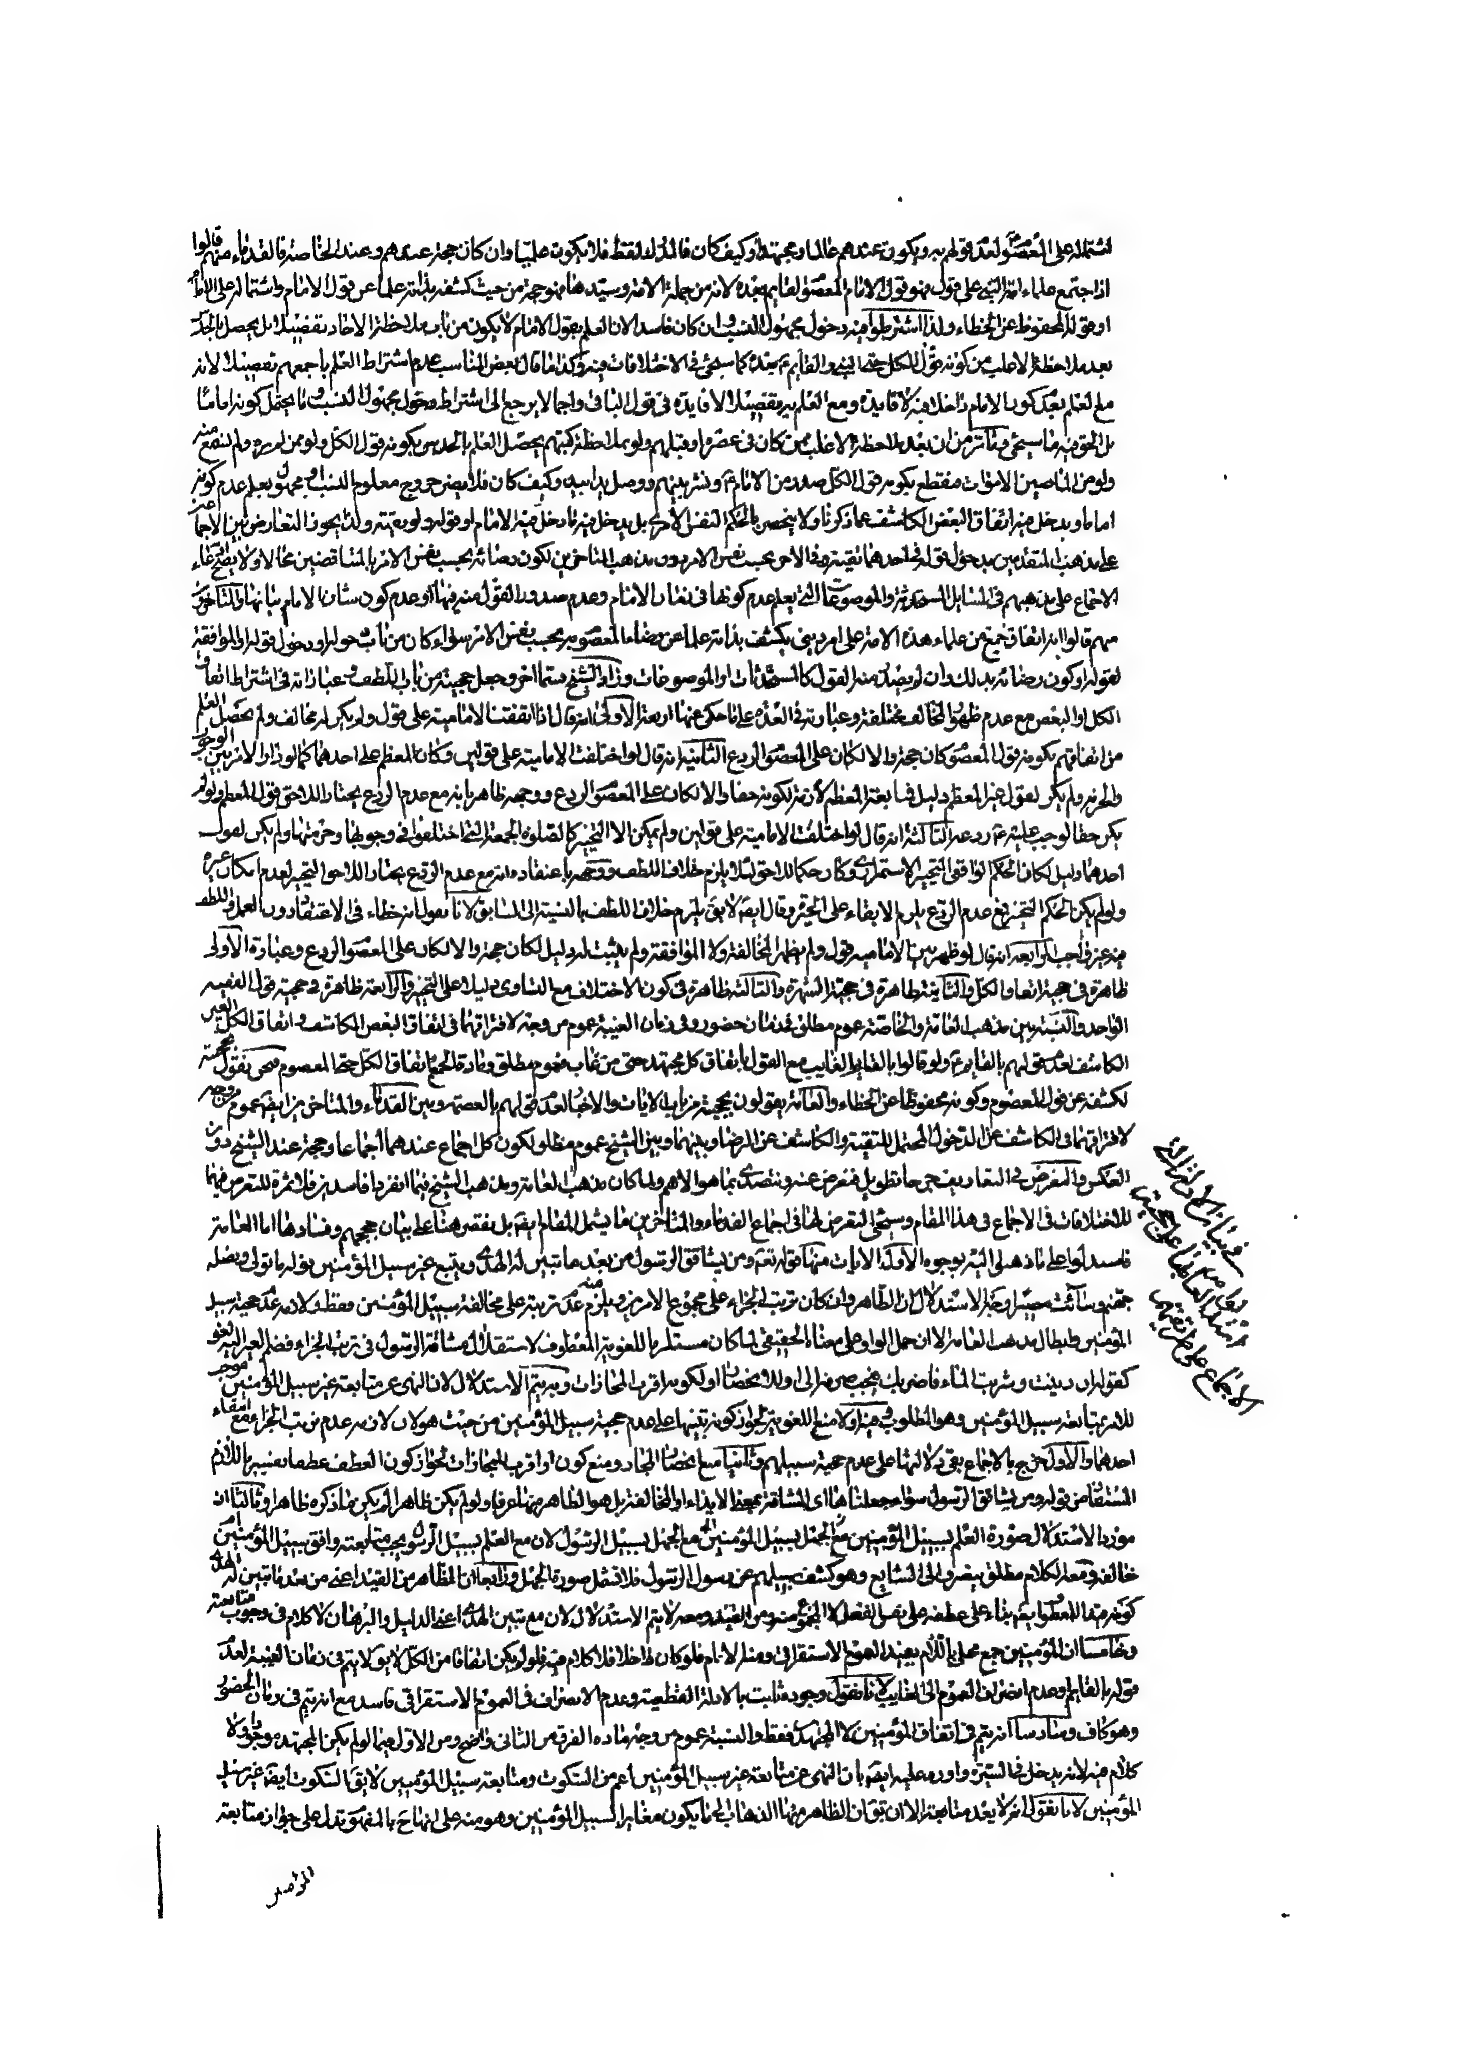 اشتماله على المعصوم لعدم قولهم به ويكون عندهم عالما ومجتهدا وكيف كان فالمدار اللفظ فلا يكون ظنيا وان كان حجة عندهم وعند الخاصة فالقدماء منهم قالوا
اذا اجتمع علماء امة النبي على قول فهو قول الامام المعصوم القايم بعده لانه من جملة الامة وسيدها فهو حجة من حيث كشفه بذاته علما عن قول الامام واشتماله على
او قوله المحفوظ عن الخطاء ولذا اشترطوا فيه دخول مجهول النسب وان كان فاسدا لان العلم بقول الامام لا يكون من باب ملاحظة الاحاد تفصيلا بل يحصل بالحدس
بعد ملاحظة الاغلب من كونه قول الكل حتى النبي والقايم بعده كما سيجئ في الاختلافات فيه وكذا ما قال بعض المناسب عدم اشتراط العلم باجمعهم تفصيلا لانه
مع العلم بعدم كون الامام داخلا فيه لا فايدة ومع العلم به تفصيلا لا فايدة في قول الباقي واجمالا يرجع الى اشتراط دخول مجهول النسب وما يحتمل كونه اماما
بل الحق فيه ما سيجئ من ان بعد ملاحظة الاغلب ممن كان في عصره او قبلهم ولو بملاحظة كتبهم يحصل العلم بالحدس بكونه قول الكل ولو ممن لم يره ولم يسمع منه
ولو من الماضين الاموات فنقطع بكونه قول الكل صدر من الامام ونشر بينهم ووصل يدا بيد وكيف كان فلا يضر خروج معلوم النسب او مجهول يعلم عدم كونه
اماما ويدخل فيه اتفاق البعض الكاشف عما ذكرنا ولا يختص بالحكم النفس الامري بل يدخل فيه ما دخل فيه الامام او قوله ولو تقية ولذا يجوز التعارض بين الاجما عين
على مذهب المتقدمين بدخول قوله في احدهما تقية وفي الاخر بحسب نفس الامر دون مذهب المتاخرين لكون رضائه بحسب نفس الامر بالمتناقضين محالا ولا يصح ادعاء
الاجماع على مذهبهم في المسايل المستحدثة والموضوعات التي يعلم عدم كونها في زمان الامام وعدم صدور القول منه فيها او عدم كون شان الامام بيانها والمتاخرون
منهم قالوا انه اتفاق جمع من علماء هذه الامة على امر ديني يكشف بذاته علما عن رضاء المعصوم به بحسب نفس الامر سواء كان من باب دخوله او دخول قوله او الموافقة
لقوله او كون رضائه بذلك وان لم يصدر منه القول كالمستحدثات او الموضوعات وزاد الشيخ قسما اخر وجعل حجيته من باب اللطف وعباراته في اشتراط اتفاق
الكل او البعض مع عدم ظهور المخالف مختلفة وعبارته في العدة على ما حكي عنها اربعة الاولى انه قال اذا اتفقت الامامية على قول ولم يكن له مخالف ولم يحصل العلم
من اتفاقهم بكونه قول المعصوم كان حجة والا لكان على المعصوم الردع الثانية انه قال لو اختلفت الامامية على قولين وكان المعظم على احدهما كما لو دار الامر بين الوجوب
والحرمة ولم يكن لقول غير المعظم دليل فمتابعة المعظم لازمة لكونه حقا والا لكان على المعصوم الردع ووجهه ظاهر بانه مع عدم الردع يختار اللاحق قول المعظم ولو لم
يكن حقا لوجب عليه ردعه الثالثة انه قال لو اختلفت الامامية على قولين ولم يمكن الا التخيير كالصلوة الجمعة التي اختلفوا في وجوبها وحرمتها ولم يكن لقول
احدهما دليل لكان الحكم الواقعي التخيير الاستمراري وكان حكما للاحق لئلا يلزم خلاف اللطف ووجهه باعتقاده انه مع عدم الردع يختار اللاحق التخيير لعدم امكان غيره
ولو لم يكن الحكم التخيير فمع عدم الردع يلزم الابقاء على الحيرة وقال ايضا لا يق يلزم خلاف اللطف بالنسبة الى السابق لانا نقول انه خطاء في الاعتقاد دون العمل واللطف
فيه غير واجب الرابعة انه قال لو ظهر بين الامامية قول ولم يظهر المخالفة ولا الموافقة ولم يثبت له دليل لكان حجة والا لكان على المعصوم الردع وعبارة الاولى
ظاهرة في حجية اتفاق الكل والثانية ظاهرة في حجية الشهرة والثالثة ظاهرة في كون الاختلاف مع التساوي دليلا على التخيير والرابعة ظاهرة في حجية قول الفقيه
الواحد والنسبة بين مذهب العامة والخاصة عموم مطلق في زمان حضور وفي زمان الغيبة عموم من وجه لافتراقهما في اتفاق البعض الكاشف واتفاق الكل الغير
الكاشف لعدم قولهم بالقايم ولو قالوا بالقايم الغايب مع القول باتفاق كل مجتهد حتى من غاب فعموم مطلق ومادة الجمع اتفاق الكل حتى المعصوم فنحن نقول بحجيته
لكشفه عن قول المعصوم وكونه محفوظا عن الخطاء والعامة يقولون بحجيته من باب الايات والاخبار لعدم قولهم بالعصمة وبين القدماء والمتاخرين ايضا عموم من وجه
لافتراقهما في الكاشف عن الدخول المحتمل للتقية والكاشف عن الرضا وبينهما وبين الشيخ عموم مطلق لكون كل اجماع عندهما اجماعا وحجة عند الشيخ دون
العكس والتعرض في التعاريف حرجا تطويل فنعرض عنه ونتصدى بما هو الاهم ولما كان مذهب العامة ومذهب الشيخ فيما انفرد فاسدين فلا ثمرة للتعرض فيهما
للاختلافات في الاجماع في هذا المقام وسيجئ التعرض لها في اجماع القدماء والمتاخرين ما يشمل المقام ايضا بل نقتصر هنا على بيان حججهم وفسادها اما العامة
فاستدلوا على ما ذهبوا اليه بوجوه الاول الايات منها قوله تعه ومن يشاقق الرسول من بعد ما تبين له الهدى ويتبع غير سبيل المؤمنين نوله ما تولى ونصله
جهنم وسائت مصيرا وجه الاستدلال ان الظاهر وان كان ترتب الجزاء على مجموع الامرين ويلزم منه عدم ترتبه على مخالفة سبيل المؤمنين فقط ولازمه عدم حجية سبيل
المؤمنين وابطال مذهب العامة الا ان حمل الواو على معناه الحقيقي لما كان مستلزما للغوية المعطوف لاستقلال مشاقة الرسول في ترتب الجزاء فضم الغير اليه لغو
كقوله ان زنيت وشربت الماء فاضربك فيجب صرفها الى او لانحصار او لكونه اقرب المجازات وبه يتم الاستدلال لان النهي عن متابعة غير سبيل المؤمنين موجب
للامر بمتابعة سبيل المؤمنين وهو المطلوب وفيه اولا منع اللغوية لجواز كونه تنبيها على عدم حجية سبيل المؤمنين من حيث هو لان لازمه عدم ترتب الجزاء مع انتفاء
احدهما والاول خرج بالاجماع بقي دلالتها على عدم حجية سبيلهم وثانيا منع انحصار المجاز ومنع كون او اقرب المجازات لجواز كون العطف عطفا تفسيريا للذم
المستفاد من قوله ومن يشاقق الرسول سواء جعلناها اي المشاقة بمعنى الايذاء او المخالفة بل هو الظاهر منها عرفا ولو لم يكن ظاهرا لم يكن ما ذكره ظاهرا وثالثا ان
مورد الاستدلال صورة العلم بسبيل المؤمنين مع الجهل بسبيل الرسول لان مع العلم بسبيل الرسول يجب متابعته وافق سبيل المؤمنين ام
خالف ومعه الكلام مطلق ينصرف الى الشايع وهو كشف سبيلهم عن رسول الرسول فلا تشمل صورة الجهل ورابعا ان الظاهر من القيد اعني من بعد ما تبين له الهدى
كونه قيدا للمعطوف ايضا بناء على عطفه على نفس الفعل لا المجموع منه ومن القيد ومعه لا يتم الاستدلال لان مع تبين الهدى اعني الدليل والبرهان لا كلام في وجوب متابعته
وخامسا ان المؤمنين جمع محلى باللام يفيد العموم الاستغراقي ومنه الامام فلو كان داخلا فلا كلام فيه فلو لم يكن اتفاقا من الكل لا يق لا يتم في زمان الغيبة لعدم
قوله بالقايم وعدم انصراف العموم الى الغايب لانا نقول وجوده ثابت بالادلة القطعية وعدم الانصراف في العموم الاستغراقي فاسد مع انه يتم في زمان الحضور
وهو كاف وسادسا انه يتم في اتفاق المؤمنين لا المجتهدين فقط والنسبة عموم من وجه ومادة الفرق من الثاني واضح ومن الاول فيما لو لم يكن المجتهد موجودا ولا
كلام فيه لانه يدخل في السيرة واورد عليه ايضا بان النهي عن متابعة غير سبيل المؤمنين اعم من السكوت ومتابعة سبيل المؤمنين لا يق السكوت ايضا غير سبيل
المؤمنين لانا نقول انه لا يعد متابعة الا ان يق ان الظاهر منها ان الذهاب الى ما يكون مغايرا لسبيل المؤمنين وهو منهي على انها ح بالمفهوم تدل على جواز متابعة
في بيان
استدل العامة على حجية
الاجماع على طريقتهم
المؤمنين